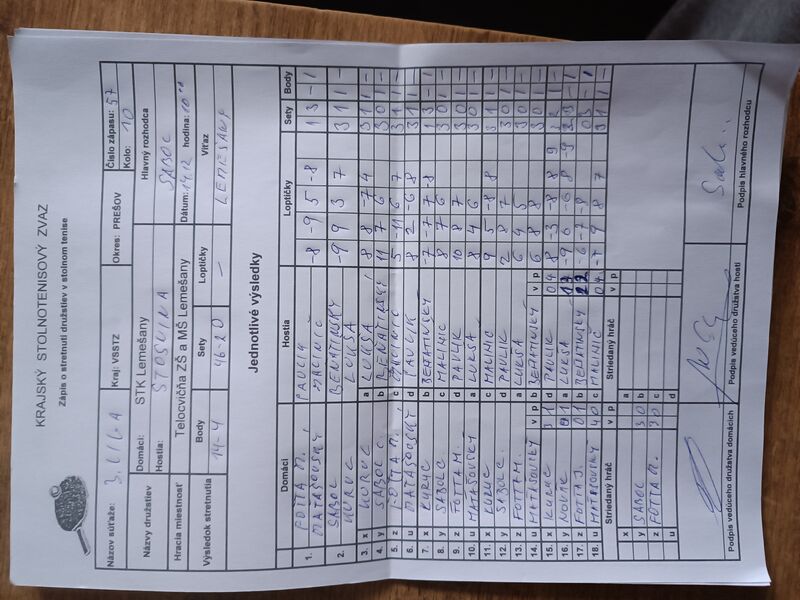 KRAJSKÝ STOLNOTENISOVÝ ZVAZ
Zápis o stretnutí družstiev v stolnom tenise
Názov súťaže: 3. LIGA Kraj: VSSTZ Okres: PREŠOV Číslo zápasu: 57
Kolo: 10
Názvy družstiev Domáci: STK Lemešany Hlavný rozhodca
Hostia: SABOL
Hracia miestnosť Telocvičňa ZŠ a MŠ Lemešany Dátum: 14.12 hodina: 10
Výsledok stretnutia Body Sety Loptičky Víťaz
14-4 46-20 - LEMEŠANY
Jednotlivé výsledky
Domáci Hostia Loptičky Sety Body
1. FOTTA M. PAVLIK -8 -9 5 -8 1 3 - 1
MATAŠOVSKÝ MALINIČ
2. SABOL BENATINSKÝ -9 9 3 7 3 1 1 -
KURUC LUKŠA
3. x KURUC a LUKŠA 8 8 -7 4 3 1 1 -
4. y SABOL b BENATINSKÝ 11 7 6 3 0 1 -
5. z FOTTA M. c MALINIČ 5 -11 6 7 3 1 1 -
6. u MATAŠOVSKÝ d PAVLIK 8 2 -6 8 3 1 1 -
7. x KURUC b BENATINSKÝ -7 -7 7 -8 1 3 - 1
8. y SABOL c MALINIC 8 7 6 3 0 1 -
9. z FOTTA M. d PAVLIK 10 8 7 3 0 1 -
10. u MATAŠOVSKÝ a LUKŠA 8 4 6 3 0 1 -
11. x KURUC c MALINIC 9 5 -8 8 3 1 1 -
12. y SABOL d PAVLIK 2 8 7 3 0 1 -
13. z FOTTA M. a LUKŠA 6 4 5 3 0 1 -
14. u MATAŠOVSKÝ v p b BENATINSKÝ v p 6 8 8 3 0 1 -
15. x KURUC 3 1 d PAVLIK 0 4 8 -3 -8 8 9 3 2 1 -
16. y a LUKŠA -9 6 -6 8 -9 2 3 - 1
17. z FOTTA J. 0 1 b BENATINSKÝ 2 2 -6 -7 -8 0 3 - 1
18. u MATAŠOVSKÝ 4 0 c MALINIČ 0 4 -7 9 8 7 3 1 1 -
Striedaný hráč v p Striedaný hráč v p
x a
y SABOL 3 0 b
z FOTTA M. 3 0 c
u d
Podpis vedúceho družstva domácich Podpis vedúceho družstva hostí Podpis hlavného rozhodcu